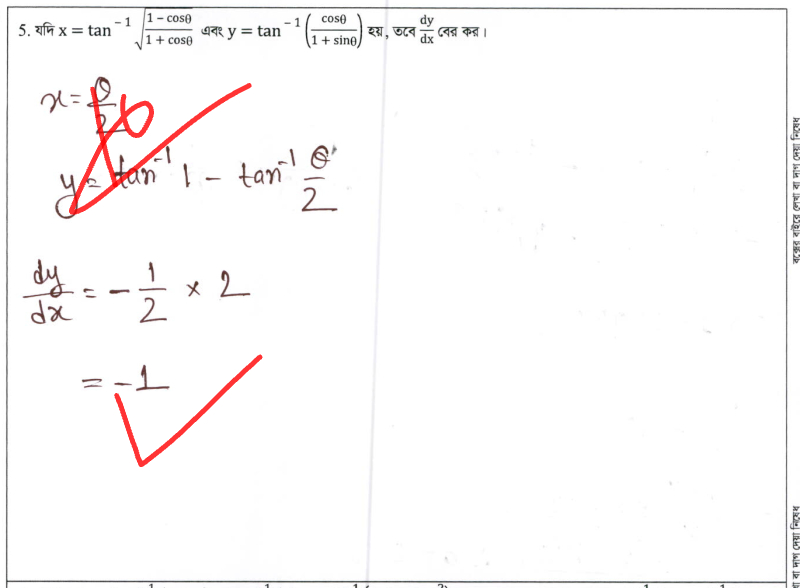 5. যদি x = tan⁻¹ √((1 − cosθ)/(1 + cosθ)) এবং y = tan⁻¹ (cosθ/(1 + sinθ)) হয়, তবে dy/dx বের কর।
x = θ/2
y = tan⁻¹ 1 − tan⁻¹ θ/2
dy/dx = − 1/2 × 2
= −1
বক্সের বাইরে লেখা বা দাগ দেয়া নিষেধ
বা দাগ দেয়া নিষেধ